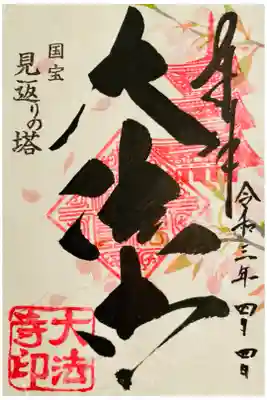 奉拝
令和三年 四月四日
大法寺
国宝
見返りの塔
大法
寺印